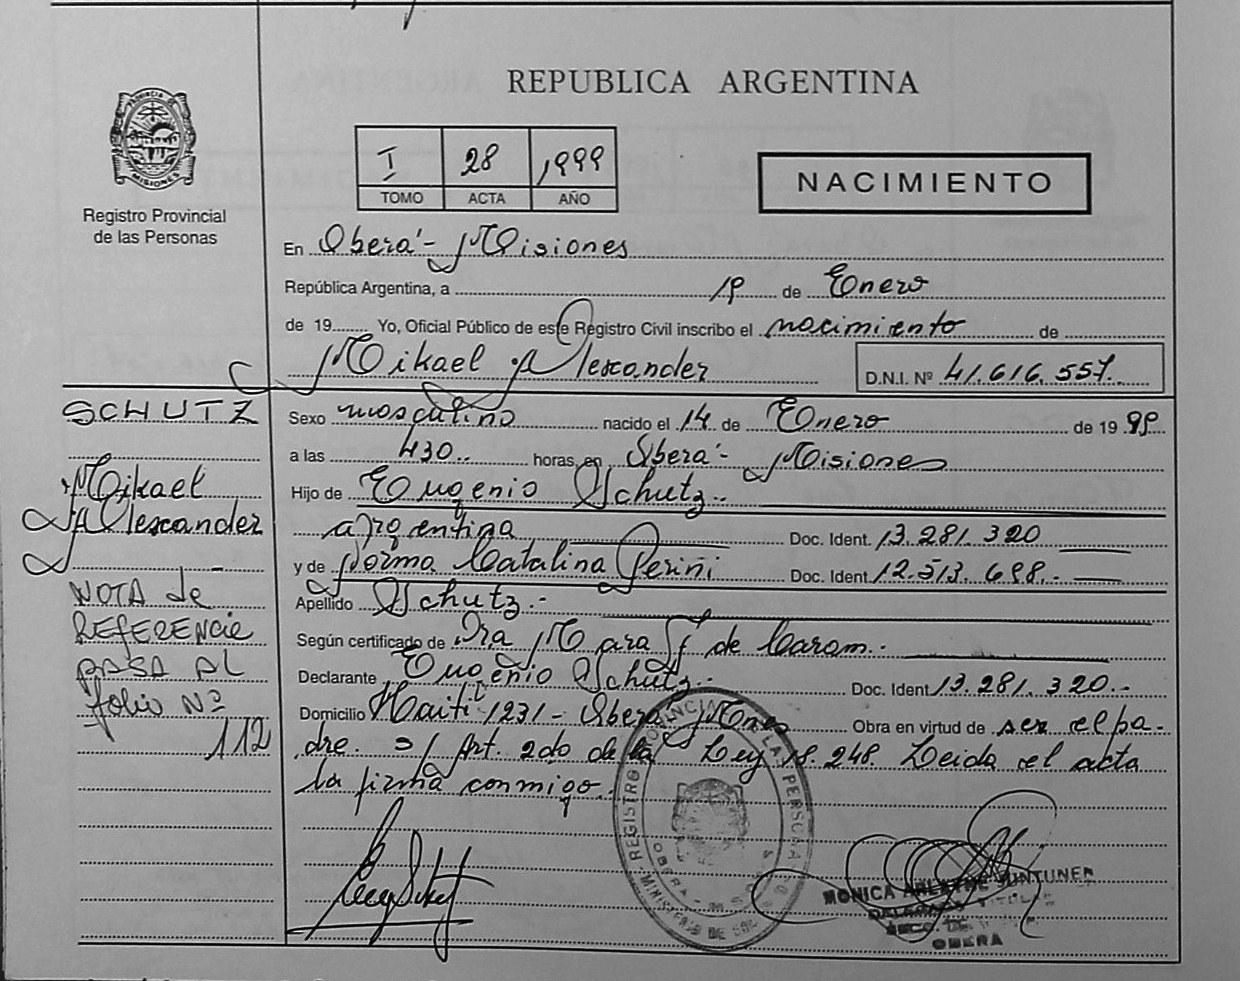 REPUBLICA ARGENTINA
PROVINCIA DE MISIONES
Registro Provincial
de las Personas
I 28 1999
TOMO ACTA AÑO
NACIMIENTO
En Oberá - Misiones
República Argentina, a 19 de Enero
de 19 Yo, Oficial Público de este Registro Civil inscribo el nacimiento de
Mikael Alexander
D.N.I. Nº 41.616.557
SCHUTZ
Mikael
Alexander
NOTA de
REFERENCIE
PASA AL
folio Nº
112
Sexo masculino nacido el 14 de Enero de 1999
a las 430 horas, en Oberá - Misiones
Hijo de Eugenio Schutz
argentina Doc. Ident. 13.281.320
y de Norma Catalina Perini Doc. Ident. 12.513.698.-
Apellido Schutz.-
Según certificado de Dra Mara de Caram.
Declarante Eugenio Schutz.- Doc. Ident. 13.281.320.-
Domicilio Haití 1231 - Oberá Mnes Obra en virtud de ser el pa-
dre. S/ Art. 2do de la Ley 18.248. Leida el acta
la firma conmigo.
REGISTRO PROVINCIAL DE LAS PERSONAS
MINISTERIO DE
OBERA
MONICA JUNTUNEN
OBERA